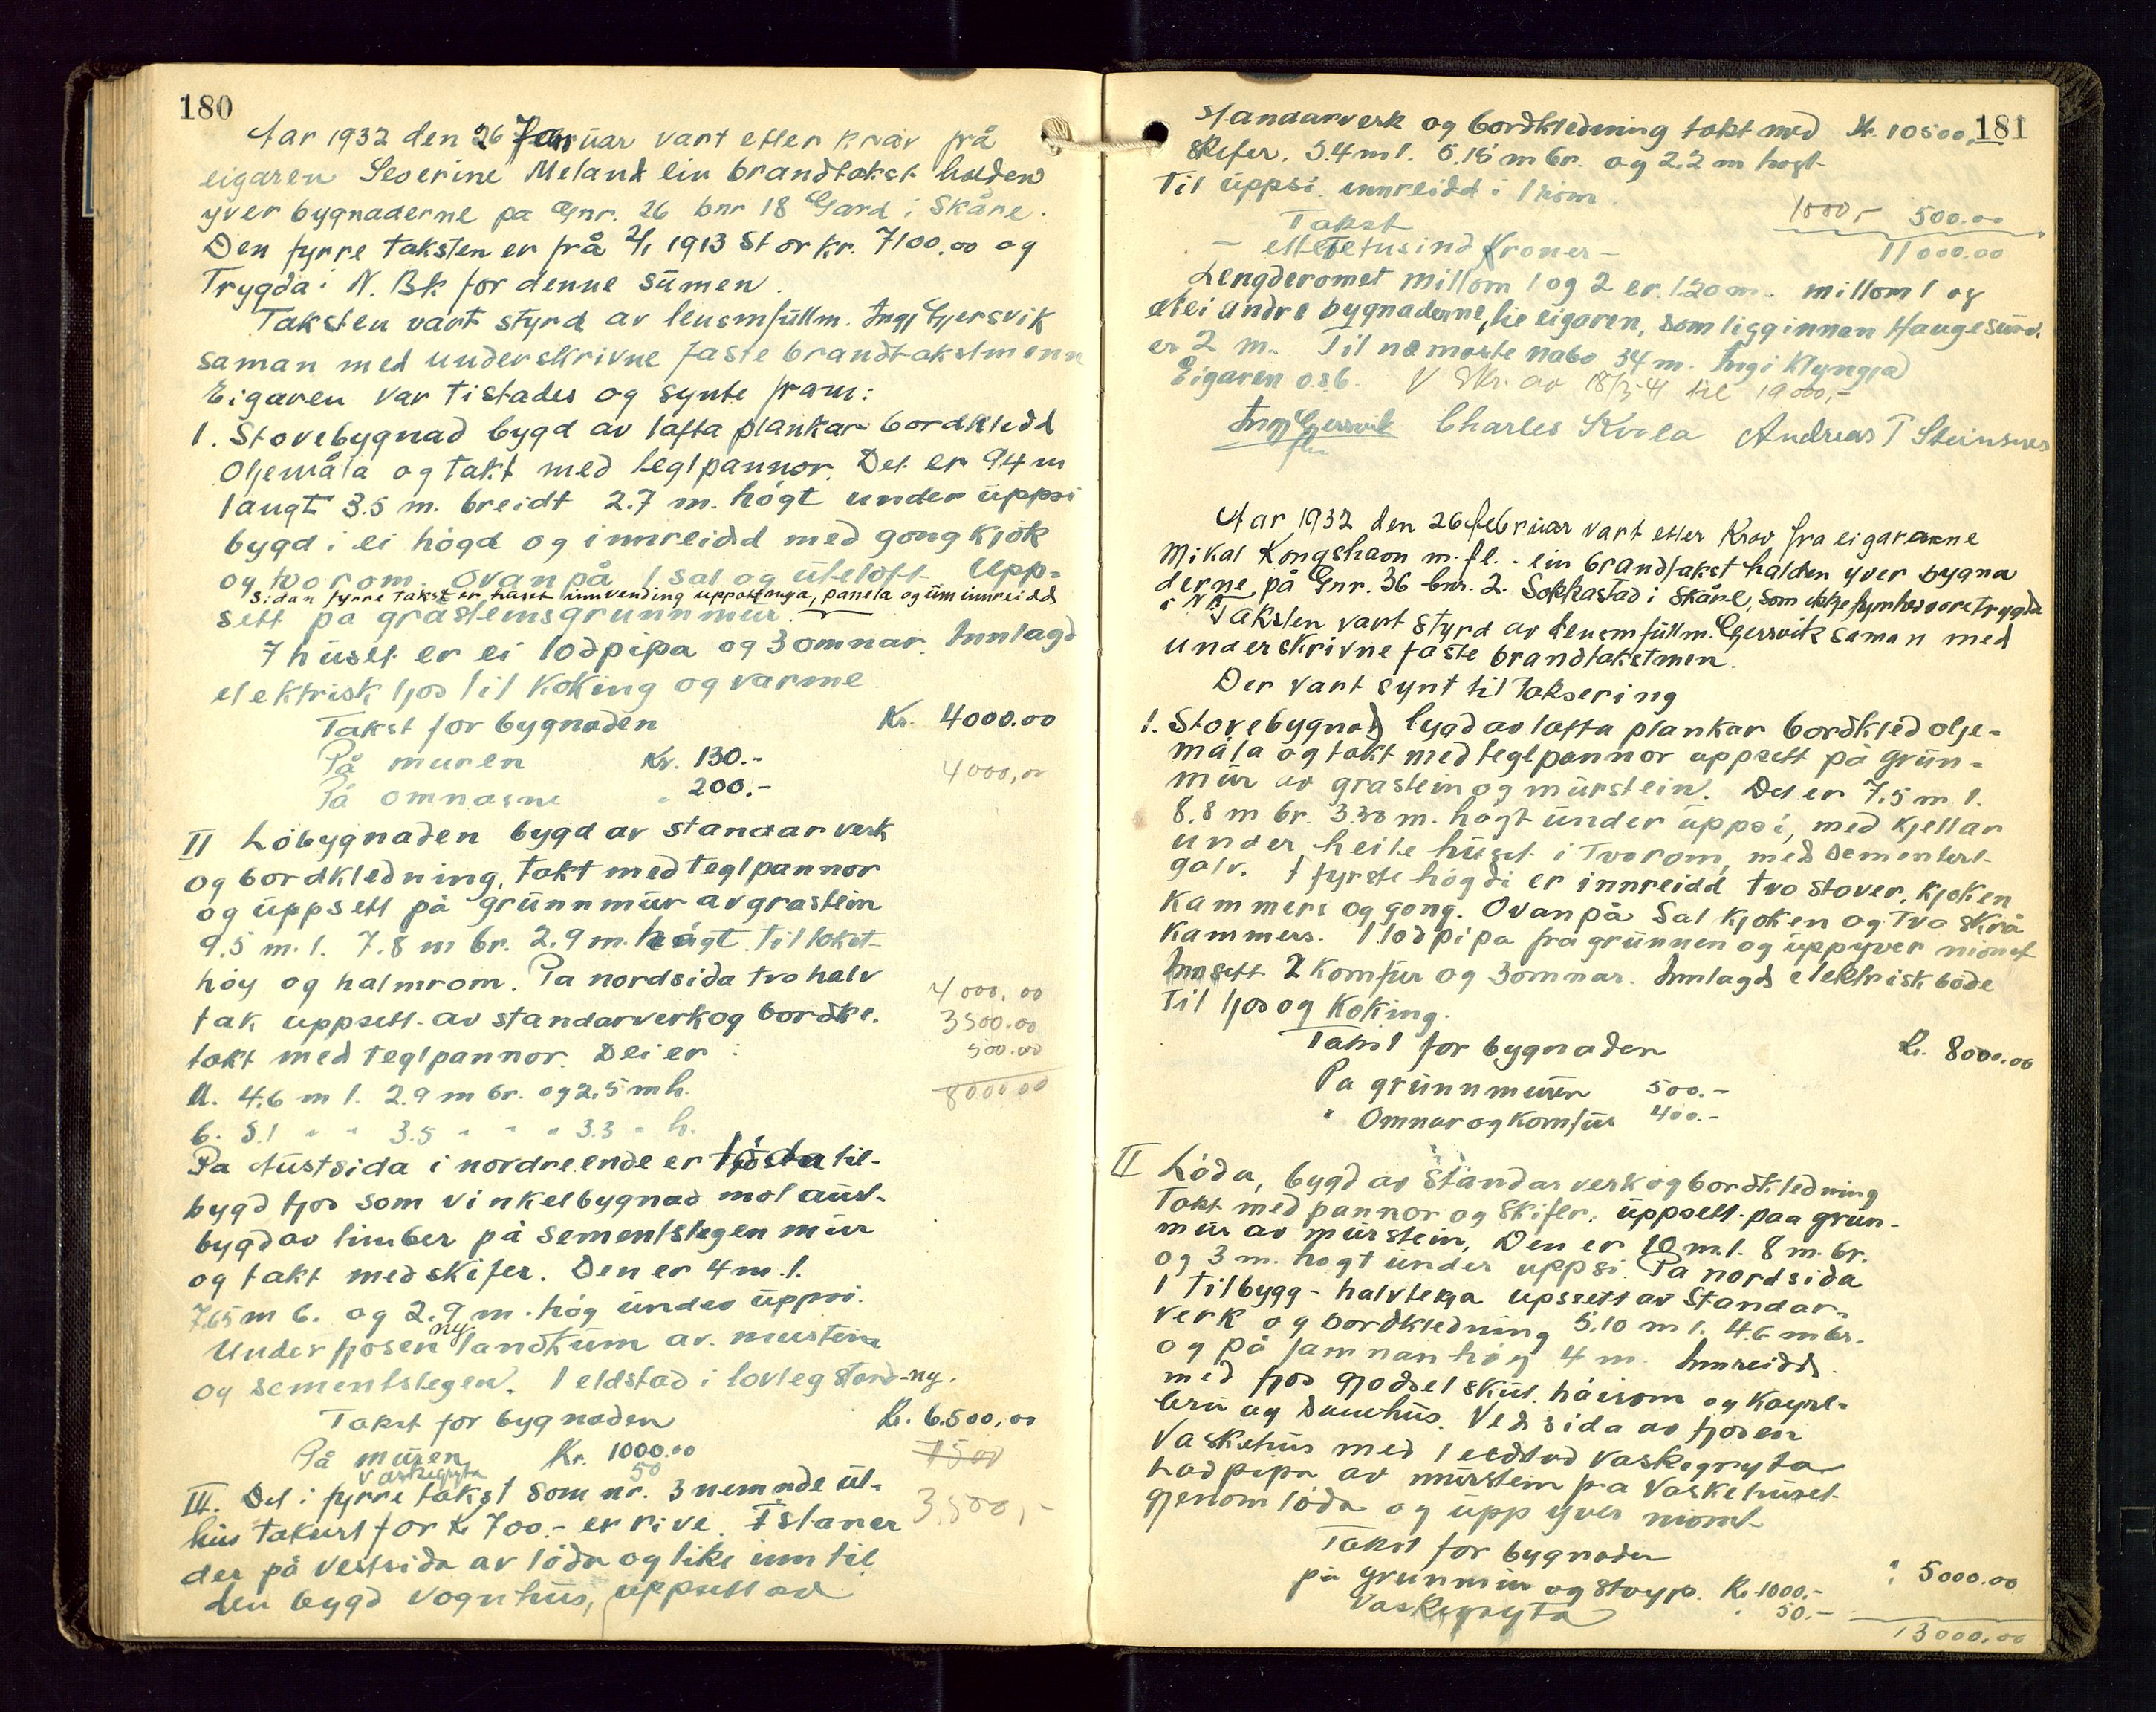 180
Aar 1932 den 26 Februar vart etter krav frå
eigaren Severine Meland ein brandtakst halden
yver bygnaderne pa Gnr. 26 bnr 18 Gard i Skåre.
Den fyrre taksten er frå 2/1 1913 Stor kr. 7100.00 og
Trygda i N. Bk for denne sumen.
Taksten vart styrd av lensmfullm. Ingj Gjersvik
saman med underskrivne faste brandtakstmenn
Eigaren var tistades og synte fram:
1. Stovebygnad bygd av lafta plankar bordkledd
Oljemåla og takt med teglpannor. Det er 9.4 m
langt 3.5 m. breidt 2.7 m. høgt under uppsi
bygd i ei høgd og innreidd med gong kjøk
og tvo rom. Ovanpå 1 sal og uteloft Upp-
sidan fyrre takst er huset innvending uppattnya, panela og um innreidd
sett på gråsteinsgrunnmur.
I huset er ei lodpipa og 3 omnar. Innlagd
elektrisk ljos til koking og varme
Takst for bygnaden Kr. 4000.00
På muren Kr. 130.-
4000,00
På omnarne " 200.-
II Løbygnaden bygd av standarverk
og bordkledning, takt med teglpannor
og uppsett på grunnmur av grastein
9.5 m. l. 7.8 m br. 2.9 m. høgt til loket
høy og halmrom. Pa nordsida tvo halv
4000.00
tak uppsett av standarverk og bordkl.
3500.00
takt med teglpannor. Dei er:
500.00
a. 4.6 m l. 2.9 m br. og 2.5 m h.
8000.00
b. 5.1 " " 3.5 " " " 3.3 " h.
Pa Austsida i nordre ende er til-
bygd fjos som vinkelbygnad mot aust-
bygd av timber på sementslegen mur
og takt med skifer. Den er 4 m. l.
7.65 m b. og 2.9 m. høg under uppsi.
ny
Under fjosen landkum av. murstein
og sementslegen. 1 eldstad i lovleg stand-ny.
Takst for bygnaden Kr. 6.500,00
På muren Kr. 1000.00
7500
vaskegryta 50
III. Det i fyrre takst som nr. 3 nemnde ut-
3.500,-
hus taksert for kr 700.- er rive. I staner
der på vestsida av løda og like inn til
den bygd vognhus, uppsett av
181
standarverk og bordkledning takt med Kr. 10500,-
skifer. 5.4 m l. 5.15 m br. og 2.2 m høgt
til uppsi innreidd i 1 rom.
1000,- 500.00
Takst
11000.00
- elletetusind Kroner -
Lengderomet millom 1 og 2 er 1.20 m. millom 1 og
dei andre bygnaderne, lie eigaren, som ligg innan Haugesund.
er 2 m. Til næmaste nabo 34 m. Ingi klyngja
Eigaren o.s.b. V Skr. av 18/3-41 til 19000,-
Ingj Gjersvik Charles Kvala Andreas T Steinsnes
Aar 1932 den 26 februar vart etter Krav fra eigaranne
Mikal Kongshavn m. fl. - ein brandtakst halden yver bygna
derne på Gnr. 36 bnr. 2. Sokkastad i Skåre, som ikkje fyrrhev vore trygda
i N. B.
Taksten vart styrd av lensmfullm. Gjersvik saman med
underskrivne faste brandtakstmen.
Der vart synt til taksering
1. Stovebygnad bygd av lafta plankar bordkled olje-
måla og takt med teglpannor uppsett på grun-
mur av grastein og murstein. Det er 7.5 m l.
8.8 m br. 3.30 m. høgt under uppsi, med kjellar
under heile huset i tvo rom, med sementert
golv. I fyrste høgdi er innreidd tvo stover, kjøken
kammers og gong. Ovanpå Sal kjøken og Tvo skrå
kammers. 1 lodpipa fra grunnen og uppyver mønet
Innsett 2 Komfur og 3 omnar. Innlagd elektrisk bode
til ljos og koking.
Takst for bygnaden Kr. 8000.00
Pa grunnmuren 500.-
" Omnar og Komfur 400.-
II Løda, bygd av standarverk og bordkledning
Takt med pannor og skifer, uppsett paa grun-
mur av murstein. Den er 10 m. l. 8 m. br.
og 3 m. høgt under uppsi. Pa nordsida
1 tilbygg - halvtekja upssett av Standar-
verk og bordkledning 5.10 m l. 4.6 m br.
og på Jamnan høg 4 m. Innreidd
med fjos gjødselskut. håirom og køyrl-
bru og Sauehus. Ved sida av fjosen
Vaskehus med 1 eldstad vaskegryta
Lodpipa av murstein fra vaskehuset
gjenom løda og upp yver mønet
Takst for bygnaden
" 5000.00
på grunmur og støyp. Kr. 1000.-
Vaskegryta " 50.-
13000.00